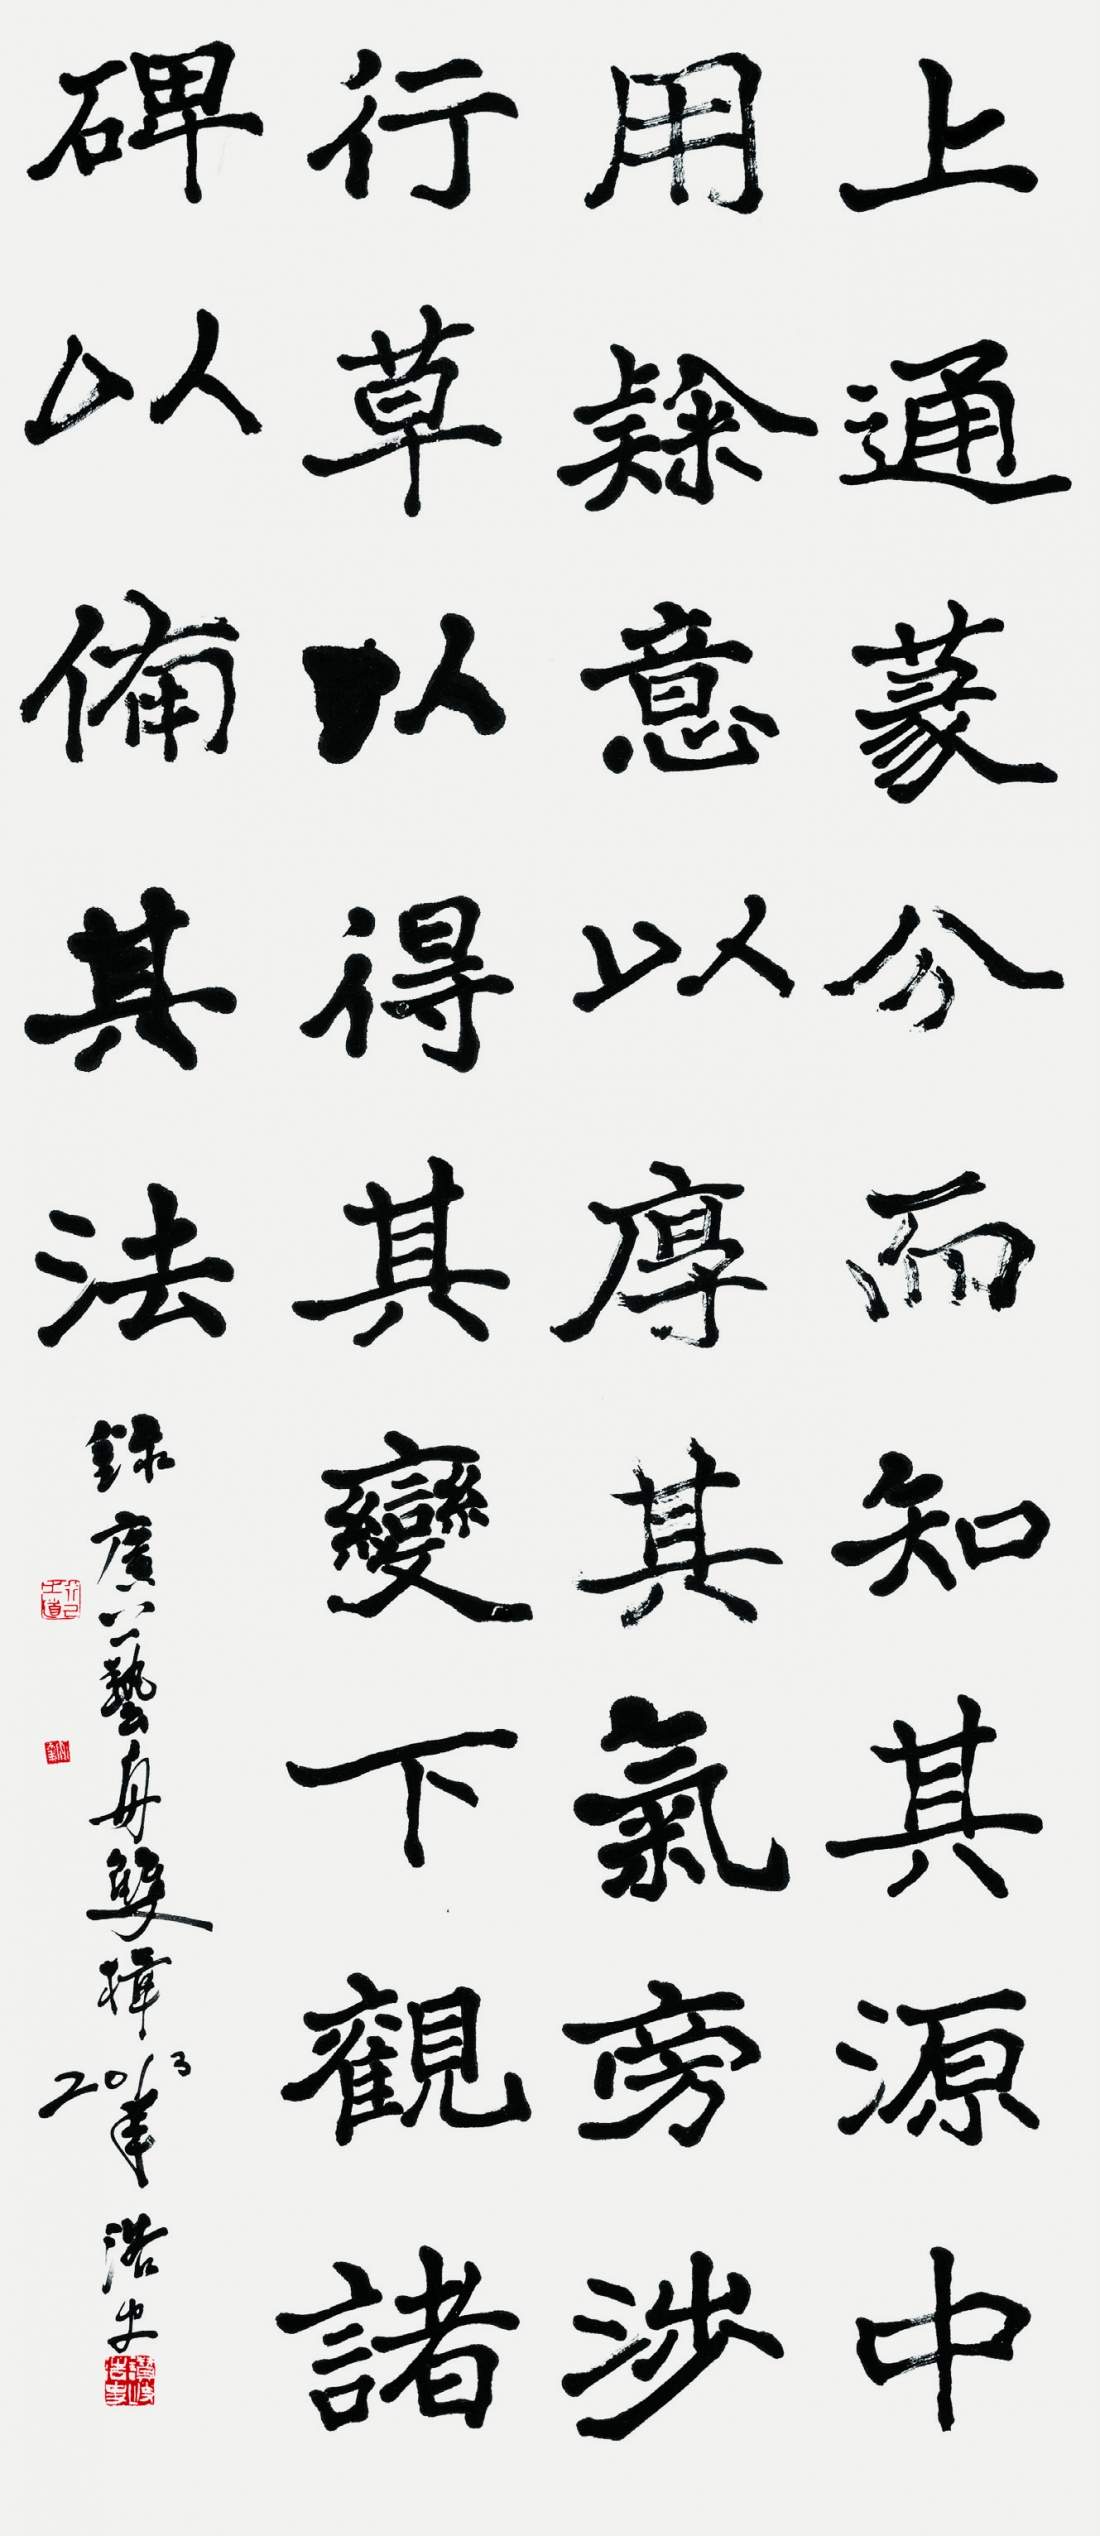 上通篆分而知其源中
用隸意以厚其氣旁涉
行草以得其變下觀諸
碑以備其法
錄廣藝舟雙楫
2013年浩史